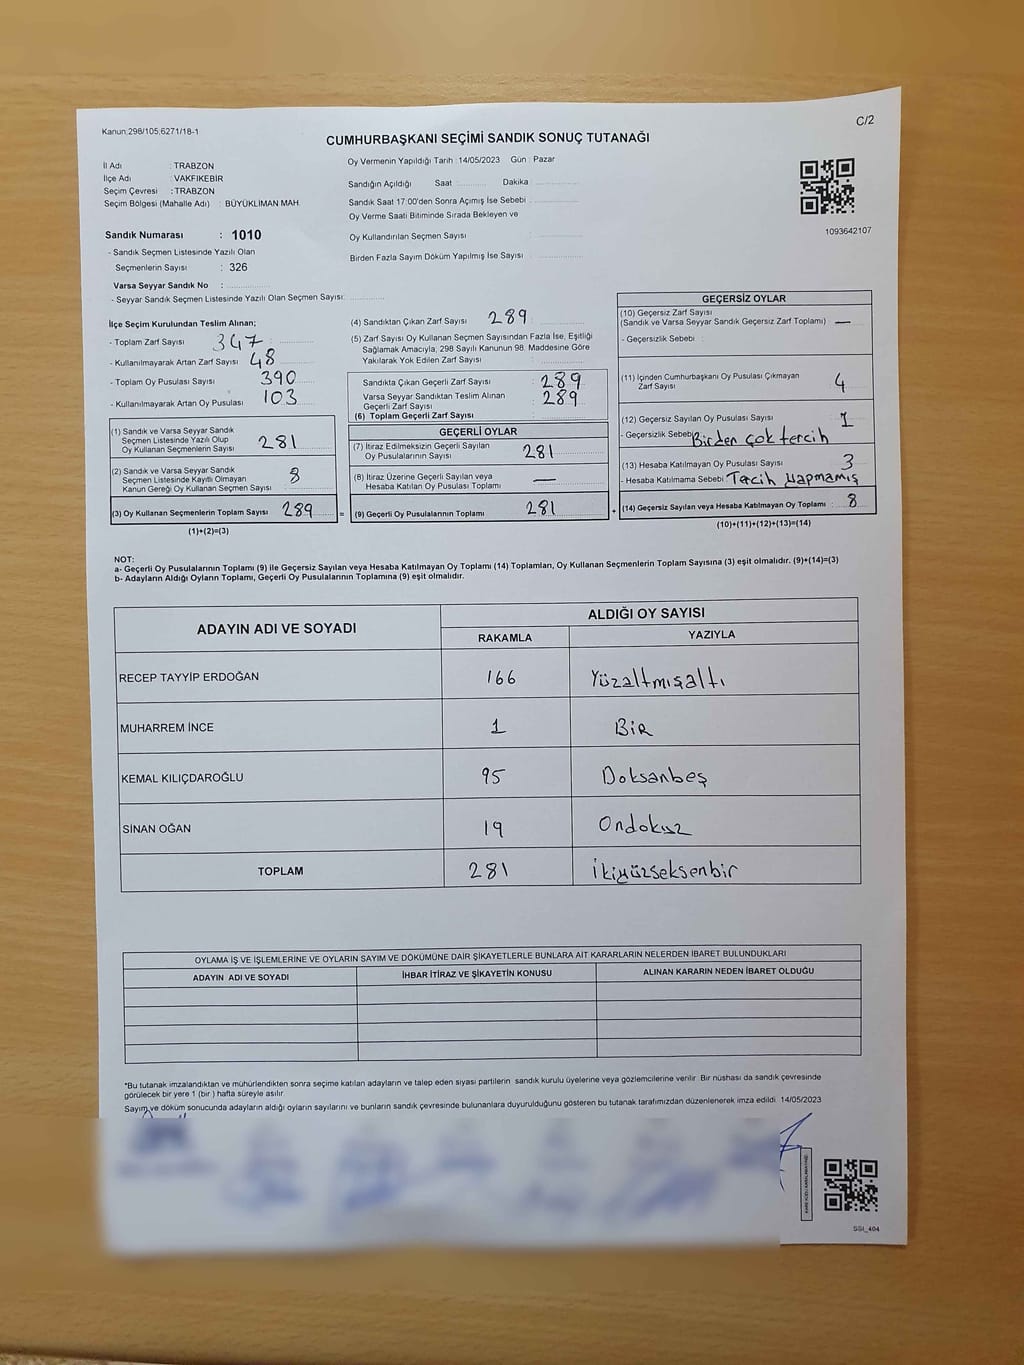 Kanun;298/105,6271/18-1
C/2
CUMHURBAŞKANI SEÇİMİ SANDIK SONUÇ TUTANAĞI
İl Adı : TRABZON
İlçe Adı : VAKFIKEBİR
Seçim Çevresi : TRABZON
Seçim Bölgesi (Mahalle Adı) : BÜYÜKLİMAN MAH.
Sandık Numarası : 1010
- Sandık Seçmen Listesinde Yazılı Olan
Seçmenlerin Sayısı : 326
Varsa Seyyar Sandık No :
- Seyyar Sandık Seçmen Listesinde Yazılı Olan Seçmen Sayısı:
Oy Vermenin Yapıldığı Tarih :14/05/2023 Gün : Pazar
Sandığın Açıldığı Saat : Dakika :
Sandık Saat 17:00'den Sonra Açımış İse Sebebi :
Oy Verme Saati Bitiminde Sırada Bekleyen ve
Oy Kullandırılan Seçmen Sayısı :
Birden Fazla Sayım Döküm Yapılmış İse Sayısı :
1093642107
İlçe Seçim Kurulundan Teslim Alınan;
- Toplam Zarf Sayısı : 347
- Kullanılmayarak Artan Zarf Sayısı : 48
- Toplam Oy Pusulası Sayısı : 390
- Kullanılmayarak Artan Oy Pusulası : 103
(1) Sandık ve Varsa Seyyar Sandık
Seçmen Listesinde Yazılı Olup
Oy Kullanan Seçmenlerin Sayısı : 281
(2) Sandık ve Varsa Seyyar Sandık
Seçmen Listesinde Kayıtlı Olmayan
Kanun Gereği Oy Kullanan Seçmen Sayısı : 8
(3) Oy Kullanan Seçmenlerin Toplam Sayısı : 289 =
(1)+(2)=(3)
(4) Sandıktan Çıkan Zarf Sayısı : 289
(5) Zarf Sayısı Oy Kullanan Seçmen Sayısından Fazla İse, Eşitliği
Sağlamak Amacıyla, 298 Sayılı Kanunun 98. Maddesine Göre
Yakılarak Yok Edilen Zarf Sayısı :
Sandıkta Çıkan Geçerli Zarf Sayısı : 289
Varsa Seyyar Sandıktan Teslim Alınan
Geçerli Zarf Sayısı : 289
(6) Toplam Geçerli Zarf Sayısı :
GEÇERLİ OYLAR
(7) İtiraz Edilmeksizin Geçerli Sayılan
Oy Pusulalarının Sayısı : 281
(8) İtiraz Üzerine Geçerli Sayılan veya
Hesaba Katılan Oy Pusulası Toplamı : —
(9) Geçerli Oy Pusulalarının Toplamı : 281 +
GEÇERSİZ OYLAR
(10) Geçersiz Zarf Sayısı
(Sandık ve Varsa Seyyar Sandık Geçersiz Zarf Toplamı) : —
- Geçersizlik Sebebi :
(11) İçinden Cumhurbaşkanı Oy Pusulası Çıkmayan
Zarf Sayısı : 4
(12) Geçersiz Sayılan Oy Pusulası Sayısı : 1
- Geçersizlik Sebebi : Birden çok tercih
(13) Hesaba Katılmayan Oy Pusulası Sayısı : 3
- Hesaba Katılmama Sebebi : Tercih Yapmamış
(14) Geçersiz Sayılan veya Hesaba Katılmayan Oy Toplamı : 8
(10)+(11)+(12)+(13)=(14)
NOT:
a- Geçerli Oy Pusulalarının Toplamı (9) ile Geçersiz Sayılan veya Hesaba Katılmayan Oy Toplamı (14) Toplamları, Oy Kullanan Seçmenlerin Toplam Sayısına (3) eşit olmalıdır. (9)+(14)=(3)
b- Adayların Aldığı Oyların Toplamı, Geçerli Oy Pusulalarının Toplamına (9) eşit olmalıdır.
ADAYIN ADI VE SOYADI
ALDIĞI OY SAYISI
RAKAMLA YAZIYLA
RECEP TAYYİP ERDOĞAN 166 Yüzaltmışaltı
MUHARREM İNCE 1 BİR
KEMAL KILIÇDAROĞLU 95 Doksanbeş
SİNAN OĞAN 19 Ondokuz
TOPLAM 281 İkiyüzseksenbir
OYLAMA İŞ VE İŞLEMLERİNE VE OYLARIN SAYIM VE DÖKÜMÜNE DAİR ŞİKAYETLERLE BUNLARA AİT KARARLARIN NELERDEN İBARET BULUNDUKLARI
ADAYIN ADI VE SOYADI İHBAR İTİRAZ VE ŞİKAYETİN KONUSU ALINAN KARARIN NEDEN İBARET OLDUĞU
*Bu tutanak imzalandıktan ve mühürlendikten sonra seçime katılan adayların ve talep eden siyasi partilerin sandık kurulu üyelerine veya gözlemcilerine verilir. Bir nüshası da sandık çevresinde
görülecek bir yere 1 (bir ) hafta süreyle asılır.
Sayım ve döküm sonucunda adayların aldığı oyların sayılarını ve bunların sandık çevresinde bulunanlara duyurulduğunu gösteren bu tutanak tarafımızdan düzenlenerek imza edildi. 14/05/2023
SSI_404